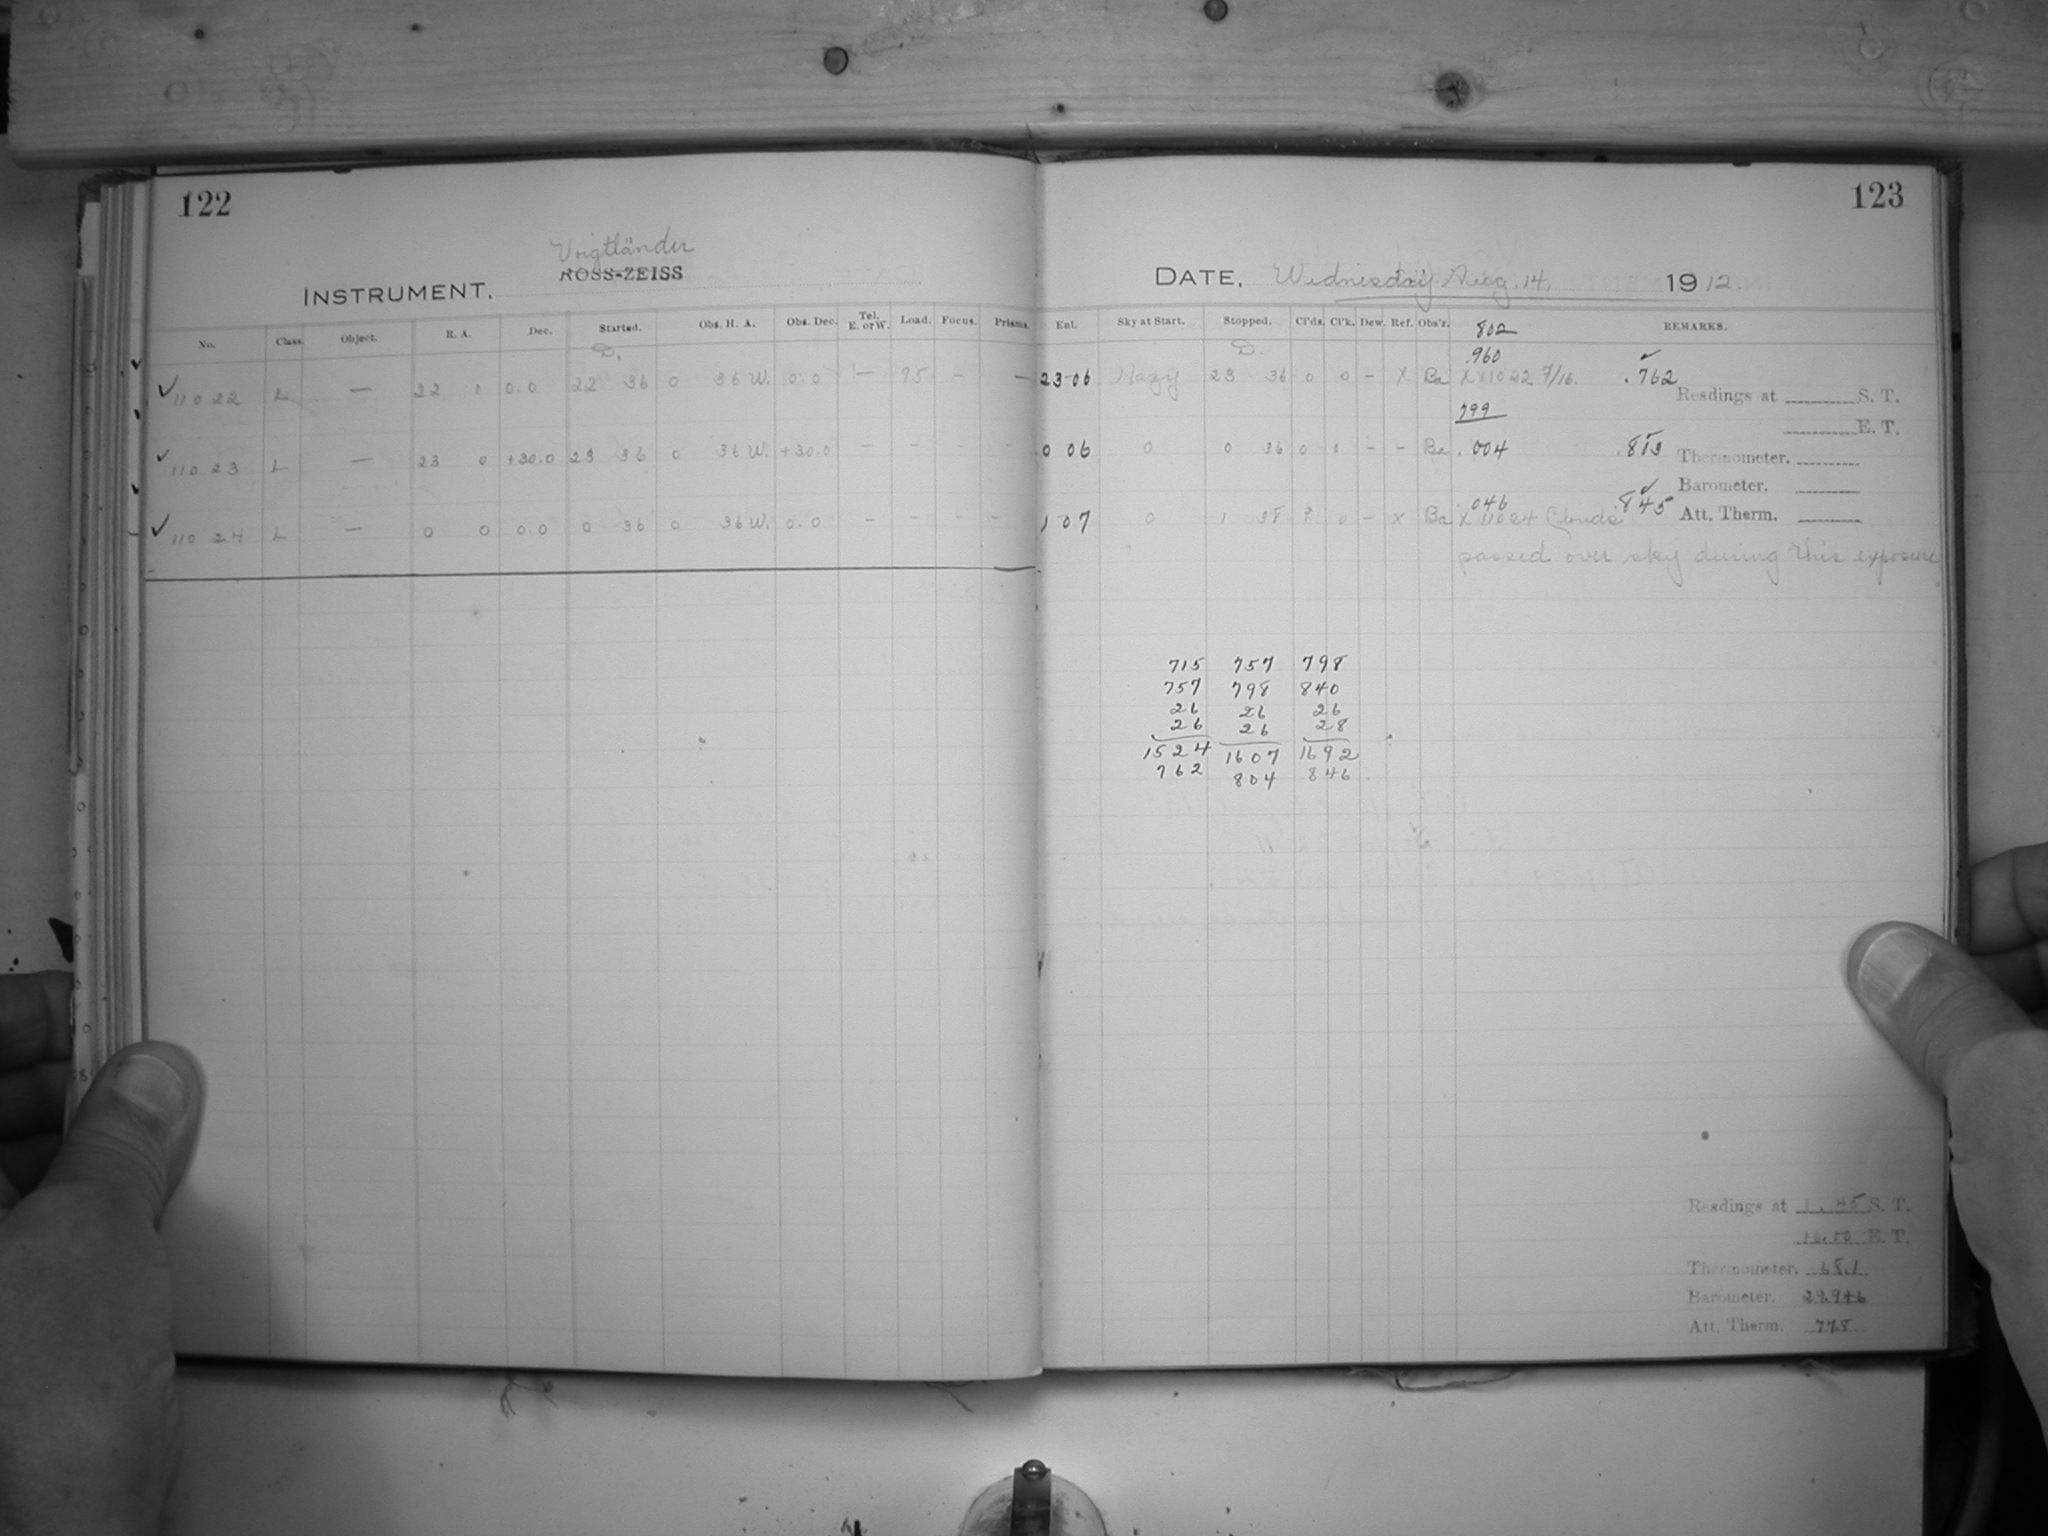 122
Voigtländer
ROSS-ZEISS
INSTRUMENT,
No. Class. Object. R. A. Dec. Started. Obs. H. A. Obs. Dec. Tel. E. or W. Load. Focus. Prisms.
D.
✓ 11022 L — 22 0 0.0 22 36 0 36 W. 0.0 — 95 — —
✓ 11023 L — 23 0 +30.0 23 36 0 36 W. +30.0 — — — —
✓ 11024 L — 0 0 0.0 0 36 0 36 W. 0.0 — — — —
123
DATE, Wednesday Aug. 14, 1912.
Enl. Sky at Start. Stopped. Cl'ds. Cl'k. Dew. Ref. Obs'r. REMARKS.
802
D. .960
23 06 Hazy 23 36 0 0 – X Ba X 11022 7/16. .762
Readings at S. T.
799
E. T.
0 06 0 0 36 0 0 – – Ba .004 .813
Thermometer.
Barometer.
.046 845
1 07 0 1 38 ? 0 – X Ba X 11024 Clouds
Att. Therm.
passed over sky during this exposure
715 757 798
757 798 840
26 26 26
26 26 28
1524 1607 1692
762 804 846
Readings at 1. 45 S. T.
E. T.
Thermometer. 68.1
Barometer. 29.946
Att. Therm. 77.8